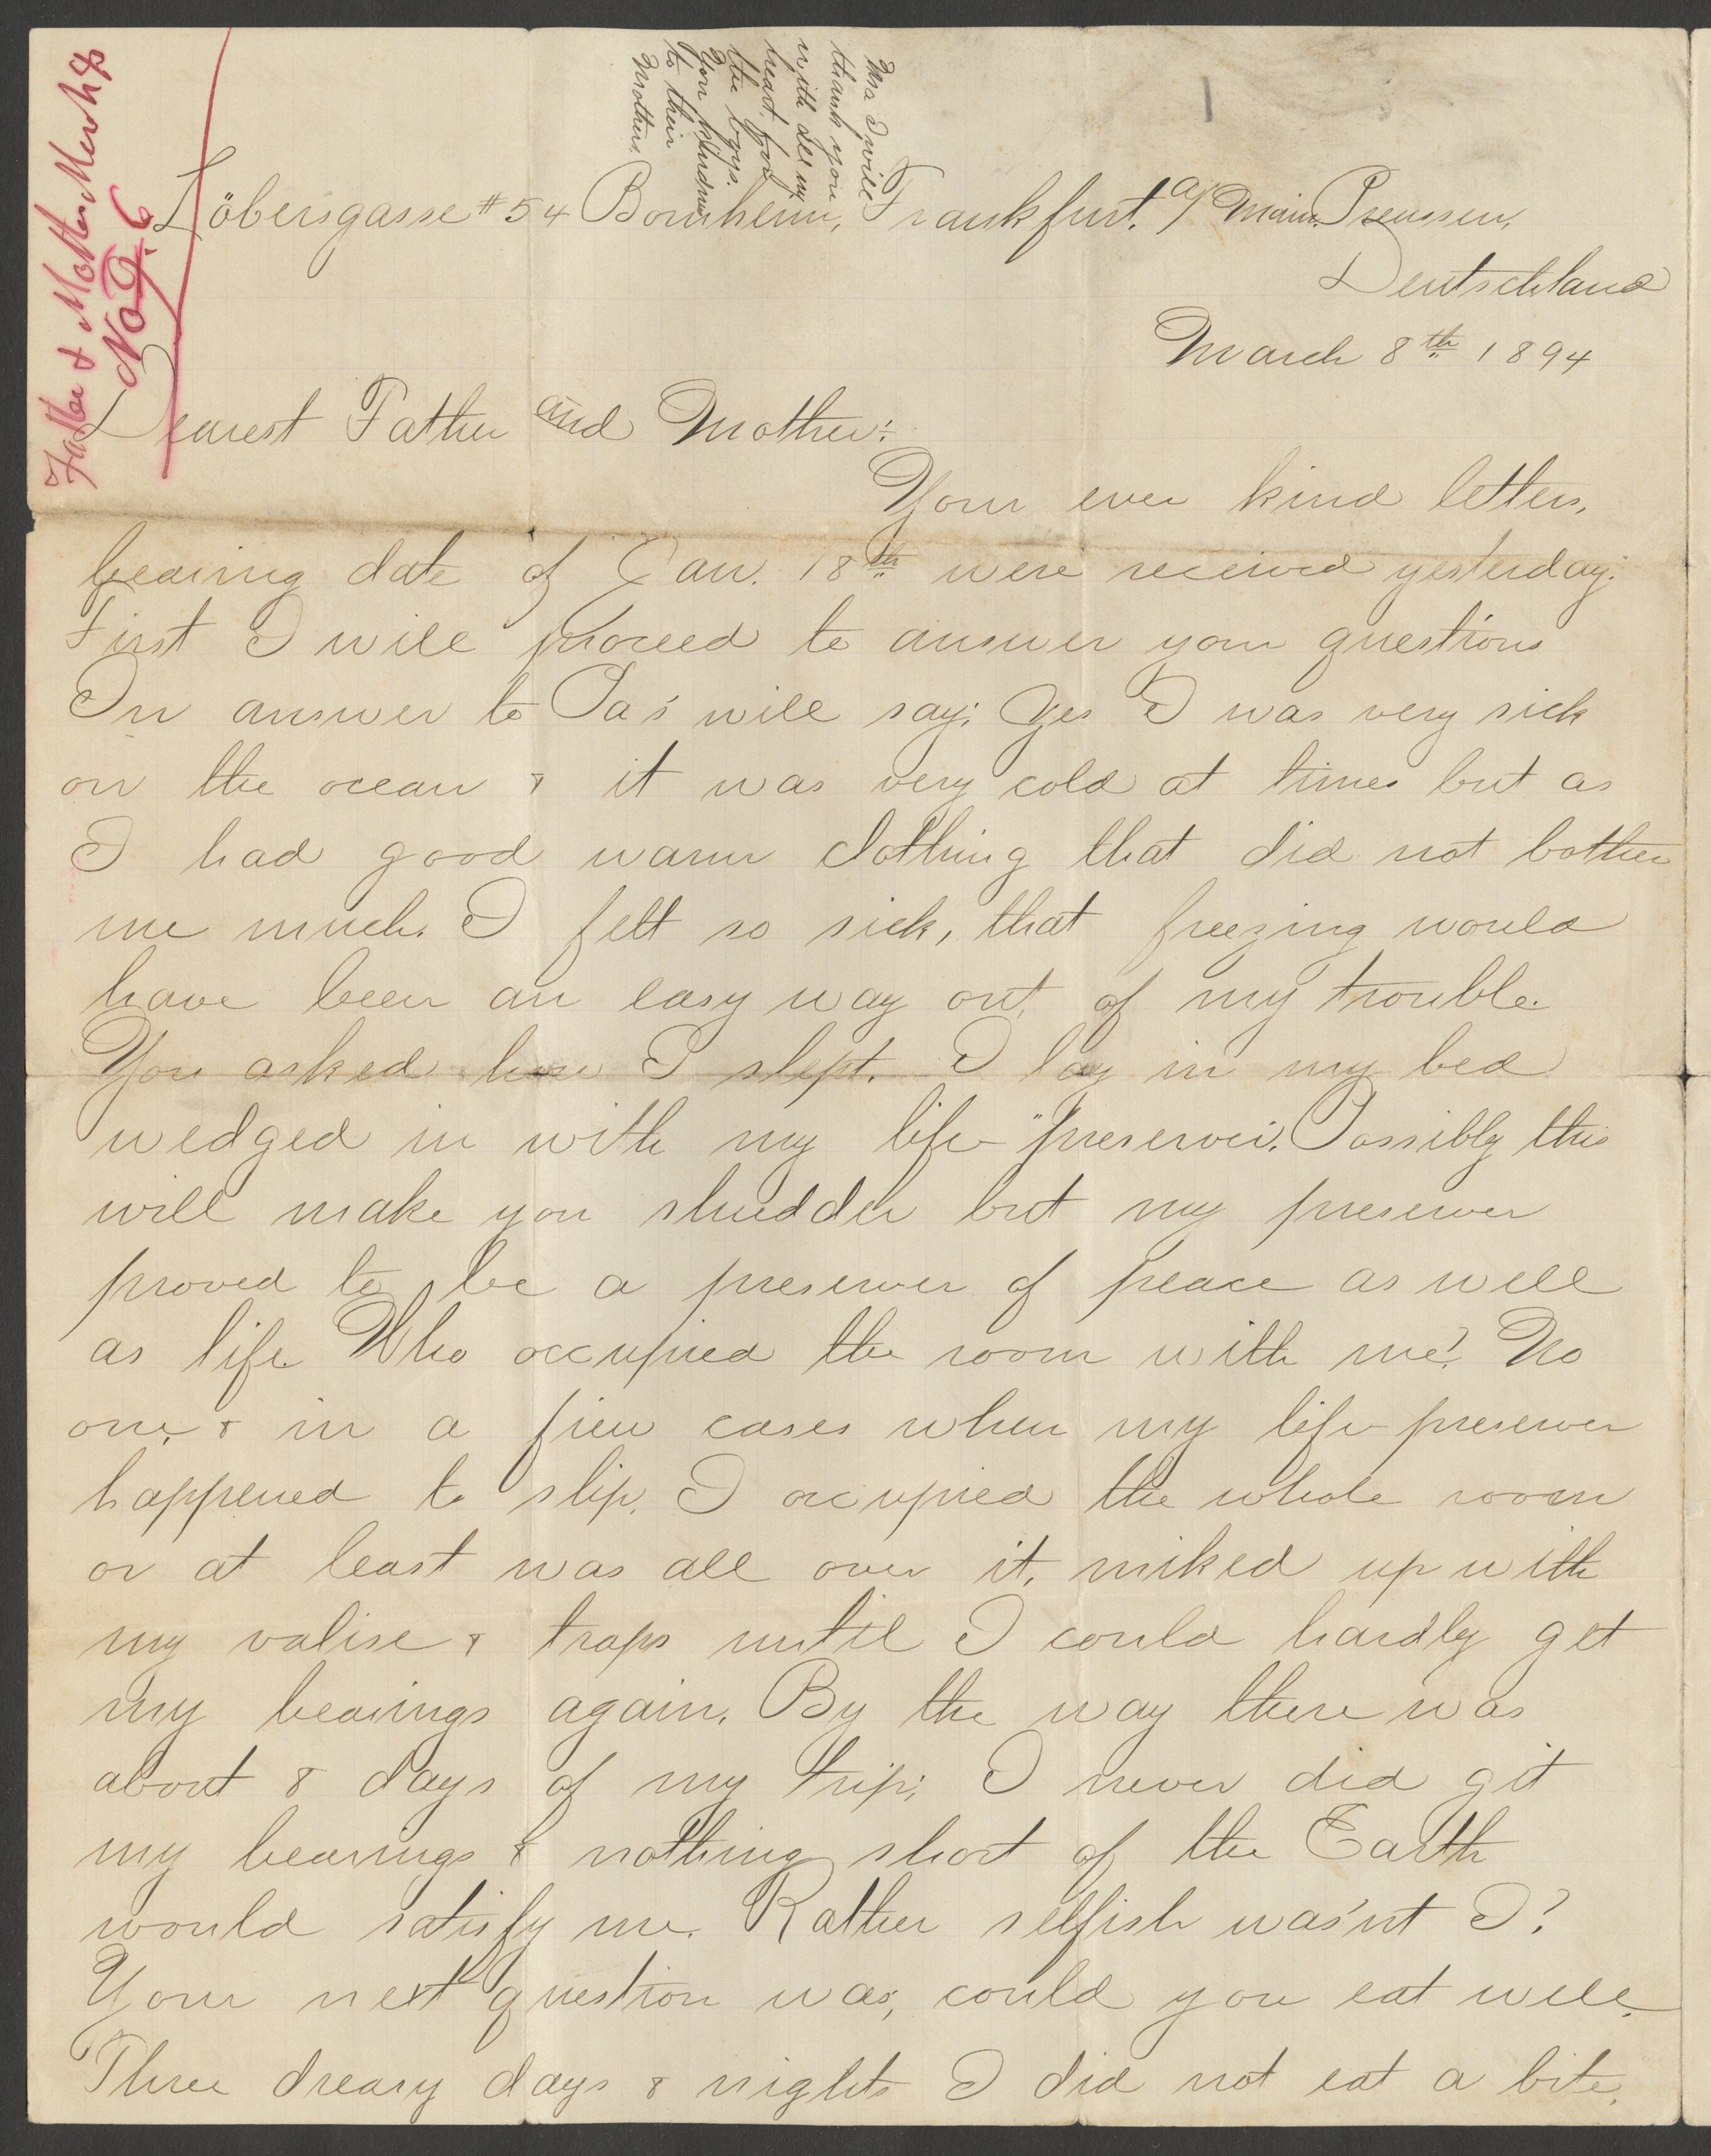 Father & Mother Merkts
No 9. 6
Ma I will
thank you
with all my
heart for
the boys.
Your kindness
to their
Mother.
Löbersgasse #54 Bornheim, Frankfurt. a/ Main. Preussen,
Deutschland
March 8th 1894
Dearest Father and Mother:
Your ever kind letters,
bearing date of Jan. 18th were received yesterday.
First I will proceed to answer your questions
In answer to Pa's will say; Yes I was very sick
on the ocean & it was very cold at times but as
I had good warm clothing that did not bother
me much. I felt so sick, that freezing would
have been an easy way out, of my trouble.
You asked how I slept. I lay in my bed
wedged in with my life "preserver. Possibly this
will make you shudder but my preserver
proved to be a preserver of peace as well
as life. Who occupied the room with me? No
one, & in a fiew cases when my life preserver
happened to slip, I occupied the whole room
or at least was all over it, miked up with
my valise & traps until I could hardly get
my bearings again. By the way there was
about 8 days of my trip; I never did git
my bearings & nothing short of the Earth
would satisfy me. Rather selfish was'nt I?
Your next question was; could you eat well.
Three dreary days & nights I did not eat a bite.